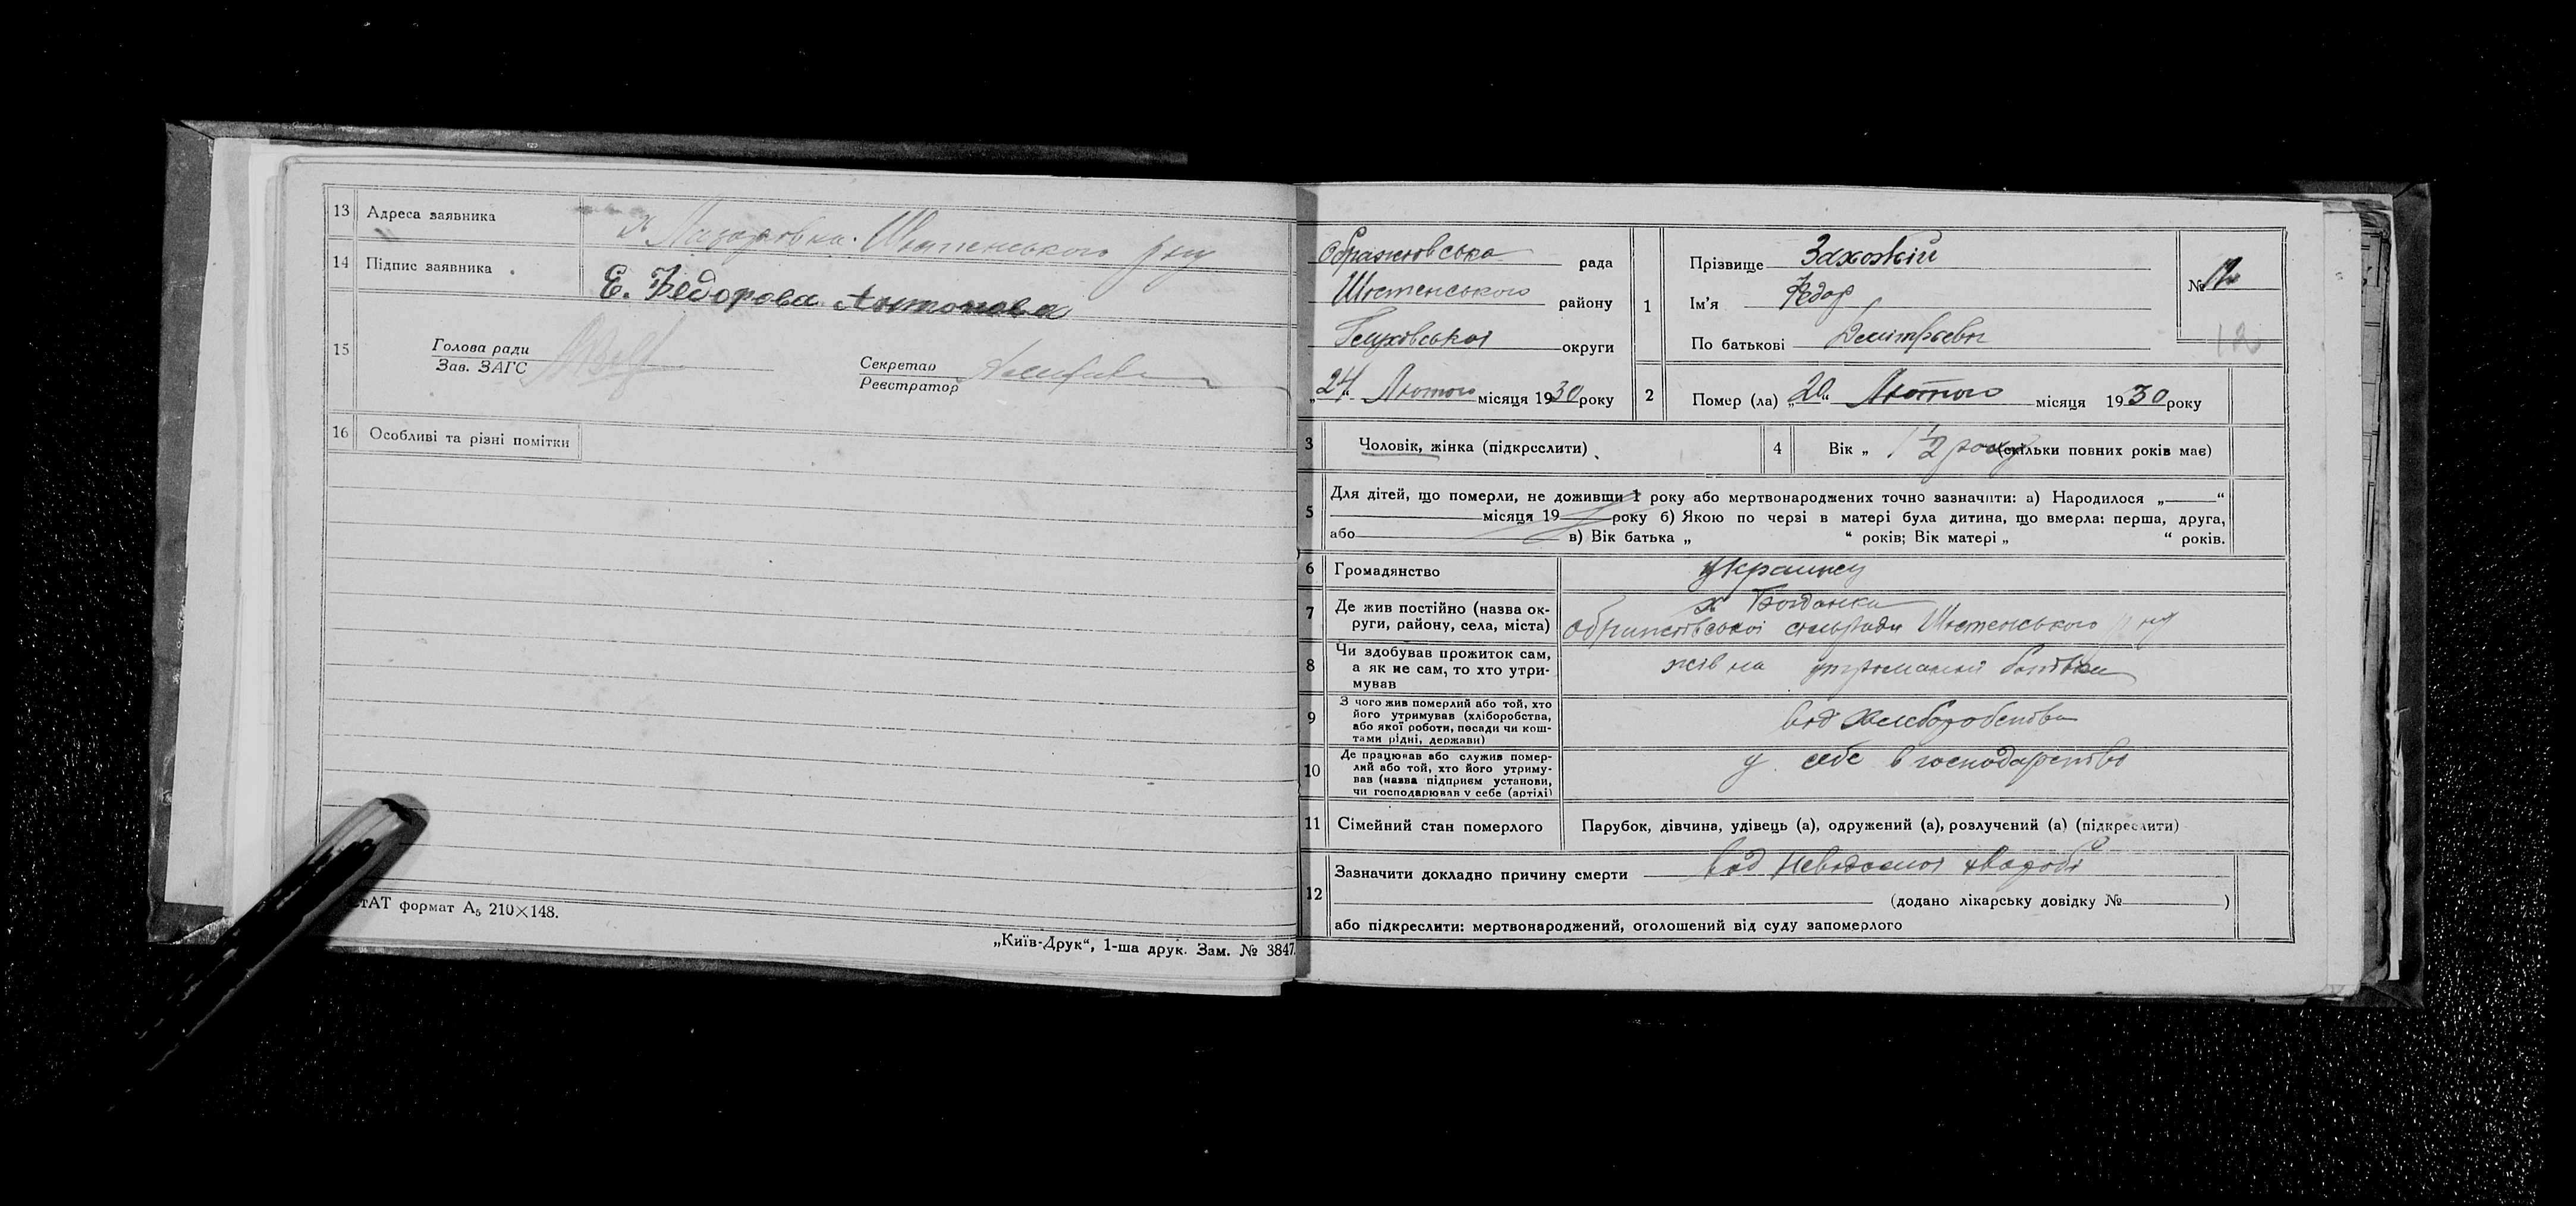 13 Адреса заявника х Лазаровка. Шостенського р ну
14 Підпис заявника Є. Федорова Антонова
15 Голова ради
Зав. ЗАГС
Секретар
Реєстратор
16 Особливі та різні помітки
формат А₅ 210×148.
„Київ-Друк“, 1-ша друк. Зам. № 3847.
Ображіївська рада
Шостенського району
Глухівської округи
„24“ Лютого місяця 1930 року
1 Прізвище Захожій
Ім’я Федор
По батькові Дмітрьевич
№ 12
12
2 Помер (ла) „20“ Лютого місяця 1930 року
3 Чоловік, жінка (підкреслити)
4 Вік „ 1 1/2 року (скільки повних років має)
5 Для дітей, що померли, не доживши 1 року або мертвонароджених точно зазначити: а) Народилося „ “
місяця 19 року б) Якою по черзі в матері була дитина, що вмерла: перша, друга,
або в) Вік батька „ “ років; Вік матері „ “ років.
6 Громадянство
7 Де жив постійно (назва ок-
руги, району, села, міста)
х Богданка
Ображіївської сільради Шостенського р ну
8 Чи здобував прожиток сам,
а як не сам, то хто утри-
мував
жів на утриманні батька
9 З чого жив померлий або той, хто
його утримував (хліборобства,
або якої роботи, посади чи кош-
тами рідні, держави)
від хліборобства
10 Де працював або служив помер-
лий або той, хто його утриму-
вав (назва підприєм установи,
чи господарював у себе (артілі)
у себе в господарстві
11 Сімейний стан померлого Парубок, дівчина, удівець (а), одружений (а), розлучений (а) (підкреслити)
12 Зазначити докладно причину смерти від невідомої хвороби
(додано лікарську довідку № )
або підкреслити: мертвонароджений, оголошений від суду запомерлого